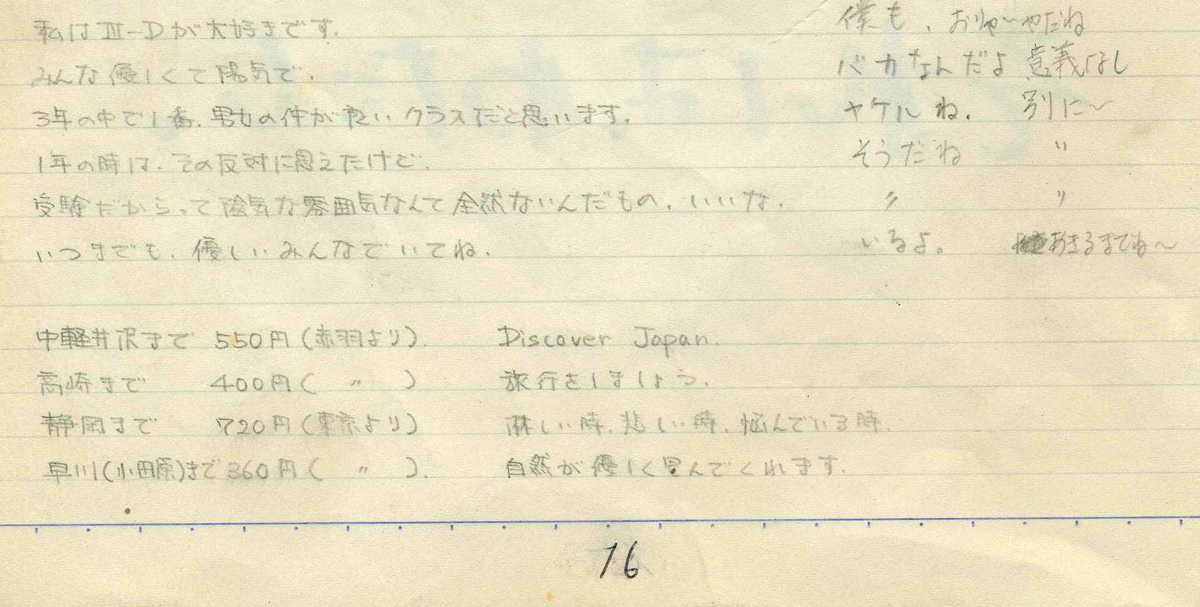 私はⅢ-Dが大好きです。 僕も、おりゃ〜やだね
みんな優しくて陽気で、 バカなんだよ 意義なし
3年の中で1番、男女の仲が良いクラスだと思います。 ヤケルね。 別に〜
1年の時は、その反対に思えたけど、 そうだね 〃
受験だからって陰気な雰囲気なんて全然ないんだもの。いいな。 〃 〃
いつまでも、優しいみんなでいてね。 いるよ。 あきるまでね〜
中軽井沢まで 550円(赤羽より)。 Discover Japan.
高崎まで 400円( 〃 ) 旅行をしましょう。
静岡まで 720円(東京より) 淋しい時、悲しい時、悩んでいる時、
早川(小田原)まで360円( 〃 )。 自然が優しく してくれます。
16